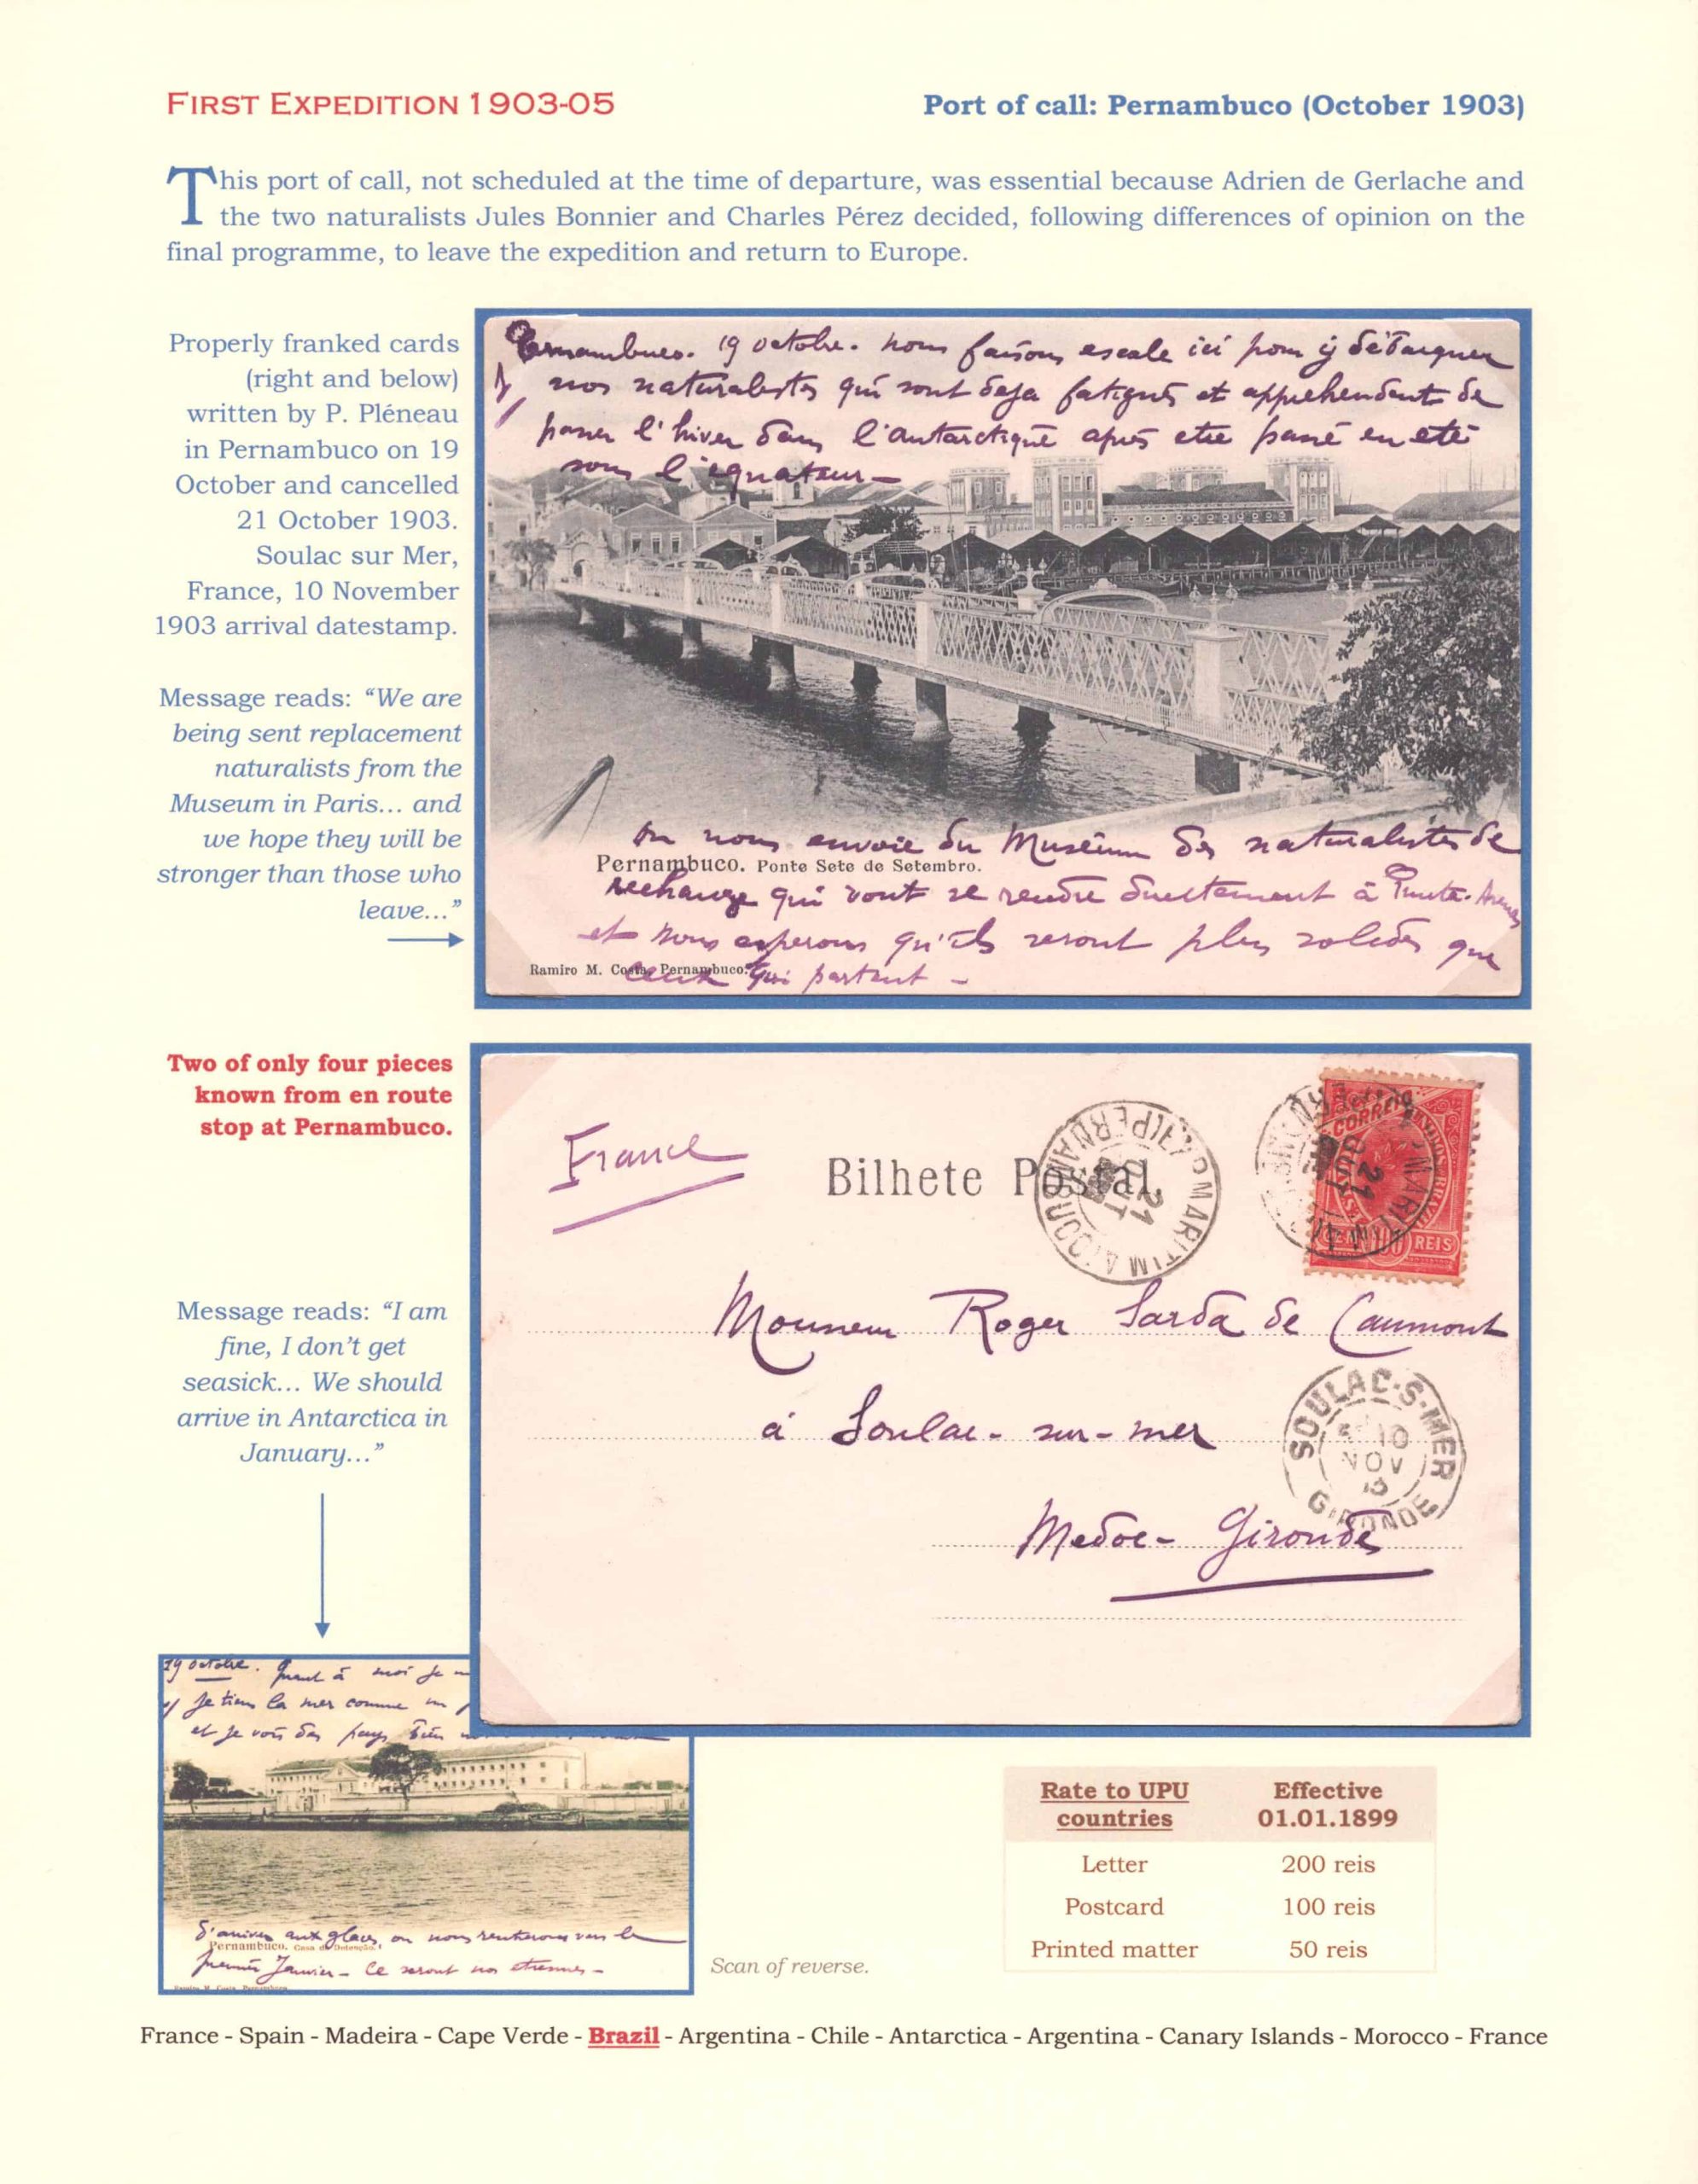 FIRST EXPEDITION 1903-05
Port of call: Pernambuco (October 1903)
This port of call, not scheduled at the time of departure, was essential because Adrien de Gerlache and
the two naturalists Jules Bonnier and Charles Pérez decided, following differences of opinion on the
final programme, to leave the expedition and return to Europe.
Properly franked cards
(right and below)
written by P. Pléneau
in Pernambuco on 19
October and cancelled
21 October 1903.
Soulac sur Mer,
France, 10 November
1903 arrival datestamp.
Message reads: “We are
being sent replacement
naturalists from the
Museum in Paris... and
we hope they will be
stronger than those who
leave...”
Pernambuco. 19 octobre. nous faisons escale ici pour y debarquer
nos naturalistes qui sont deja fatigués et apprehendent de
passer l'hiver dans l'antarctique après etre passé en eté
sous l'equateur-
on nous envoie du Muséum des naturalistes de
Pernambuco. Ponte Sete de Setembro.
rechange qui vont se rendre directement à Punta-Arenas
et nous esperons qu'ils seront plus solides que
Ramiro M. Costa, Pernambuco.
ceux qui partent -
Two of only four pieces
known from en route
stop at Pernambuco.
France
Bilhete Postal
MARITIMA
21
OUT
CORREIO
100 REIS
Monsieur Roger Sarda de Caumont
à Soulac-sur-mer
SOULAC-S-MER
10
NOV
GIRONDE
Medoc- Gironde
Message reads: “I am
fine, I don't get
seasick... We should
arrive in Antarctica in
January...”
19 octobre. Quant à moi je
Je tiens la mer comme un
et je vois des pays bien
d'arriver aux glaces, on nous rentrerons vers le
Pernambuco. Casa de Detenção.
premier Janvier - Ce seront nos etrennes -
Ramiro M. Costa, Pernambuco
Scan of reverse.
Rate to UPU countries
Effective 01.01.1899
Letter 200 reis
Postcard 100 reis
Printed matter 50 reis
France - Spain - Madeira - Cape Verde - Brazil - Argentina - Chile - Antarctica - Argentina - Canary Islands - Morocco - France